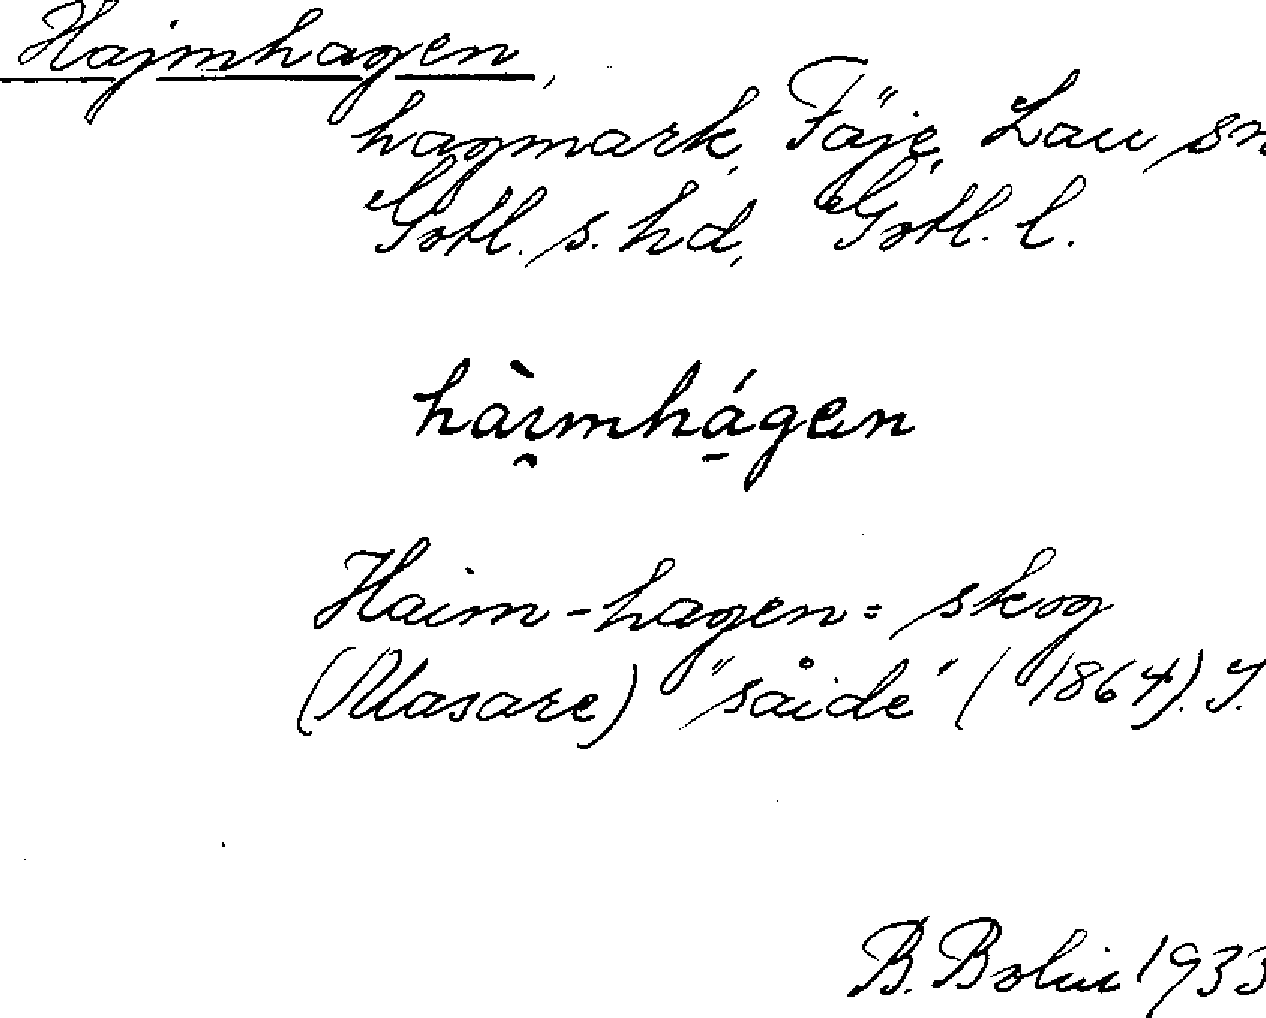 Hajmhagen,
hagmark, Fäje, Lau sn
Gotl. s. hd, Gotl. l.
hàɪmhágen
Haim-hagen = skog
(Masare) "såide" (1864). J.
B. Bolin 1933